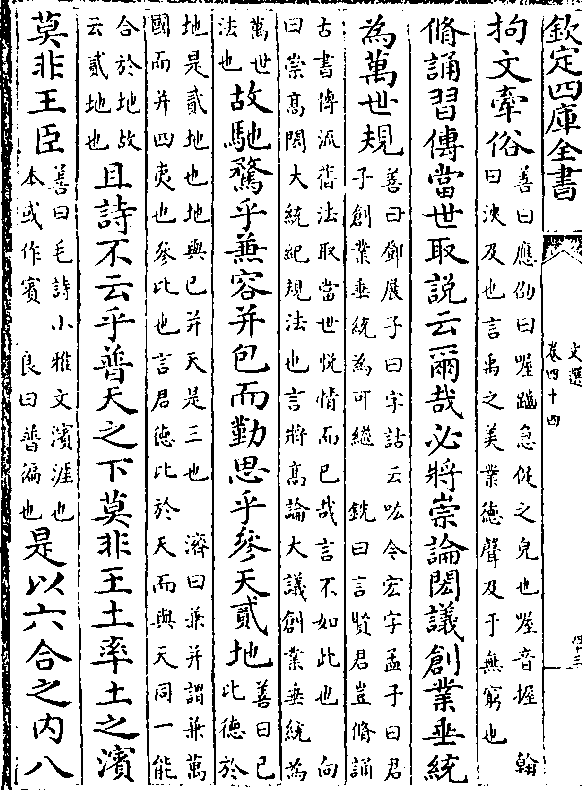 欽定四庫全書
文選
卷四十四
拘文牽俗
善曰應劭曰喔齪急促之皃也喔音握 翰
曰浹及也言禹之美業德聲及于無窮也
脩誦習傳當世取說云爾哉必將崇論閎議創業垂統
為萬世規
善曰鄧展子曰字詁云吰今宏字孟子曰君
子創業垂統為可繼 銑曰言賢君豈脩誦
古書傳派舊法取當世悅情而已哉言不如此也 向
曰崇高閎大統紀規法也言將高論大議創業垂統為
萬世
法也
故馳騖乎兼容并包而勤思乎參天貳地
善曰己
比德於
地是貳地也地與己并天是三也 濟曰兼并謂兼萬
國而并四夷也參比也言君德比於天而與天同一能
合於地故
云貳地也
且詩不云乎普天之下莫非王土率土之濱
莫非王臣
善曰毛詩小雅文濱涯也
本或作賓 良曰普遍也
是以六合之內八